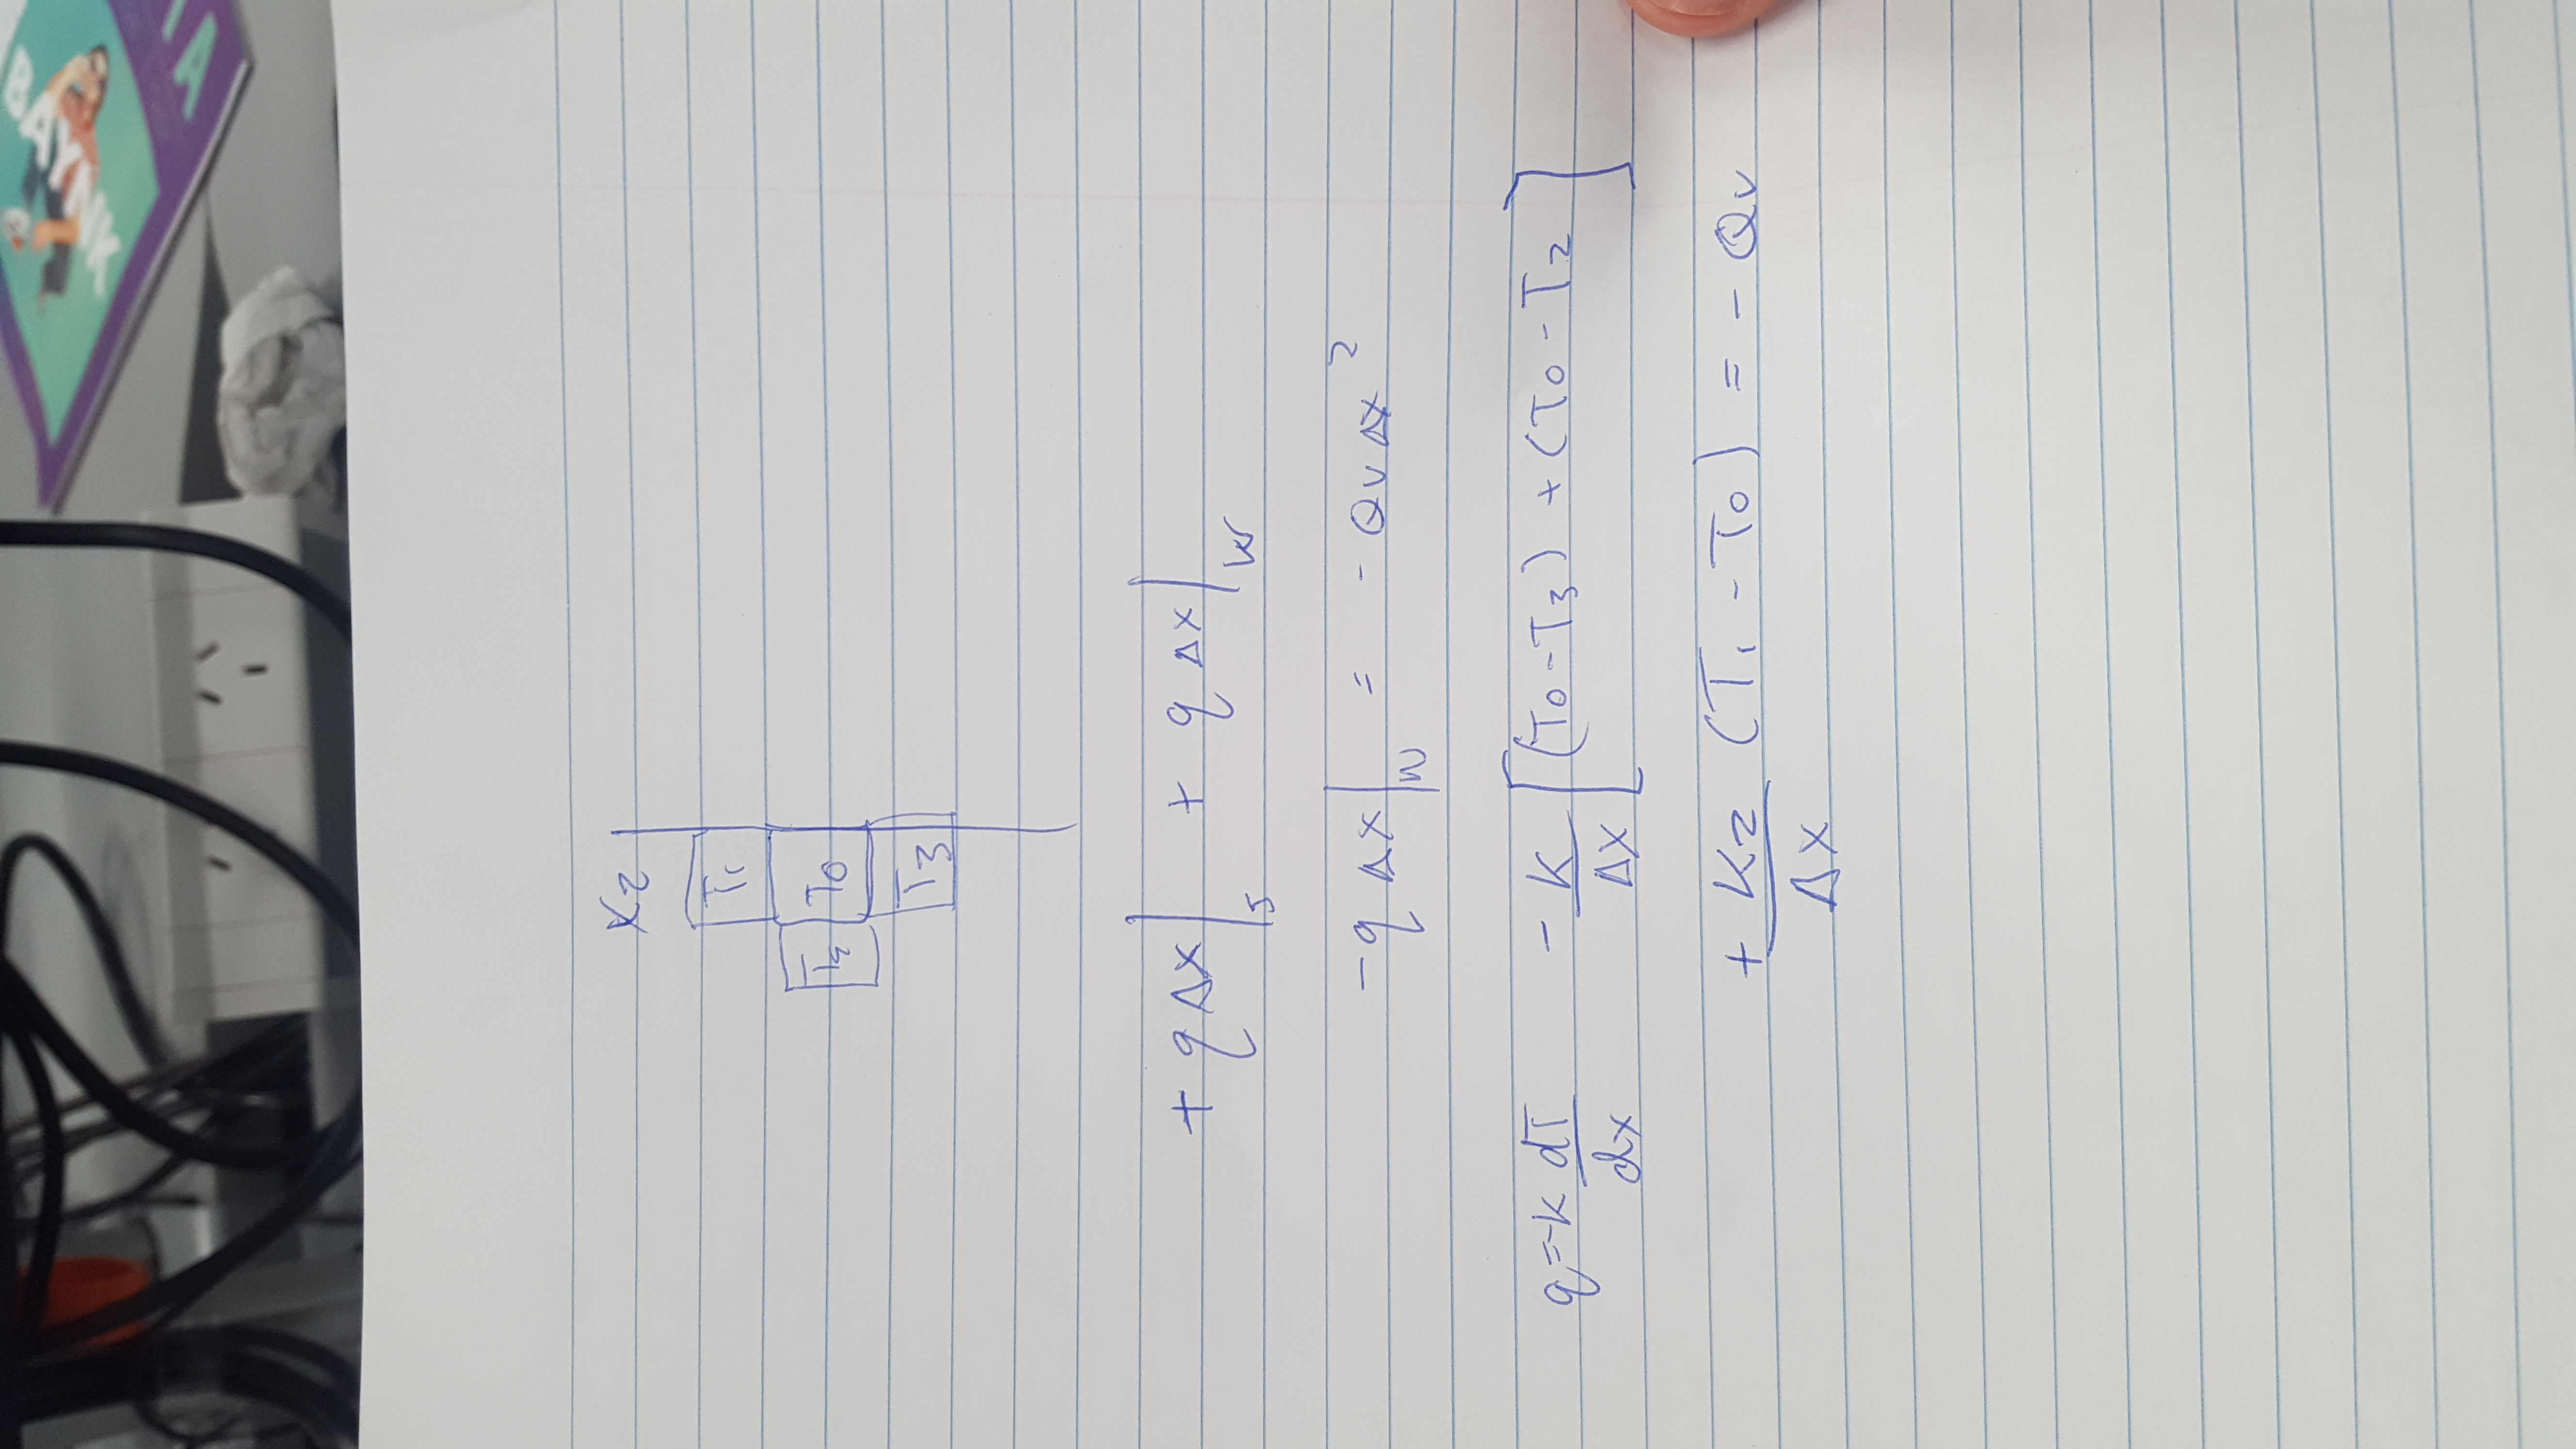 BAYNK
TA
X2
T1
T2 T0
T3
+ q Δx|s + q Δx|w
-q Δx|N = - Qv Δx²
q=-k dT/dx - K/Δx [(T0 - T3) + (T0 - T2]
+ K2/Δx (T1 - T0) = - Qv